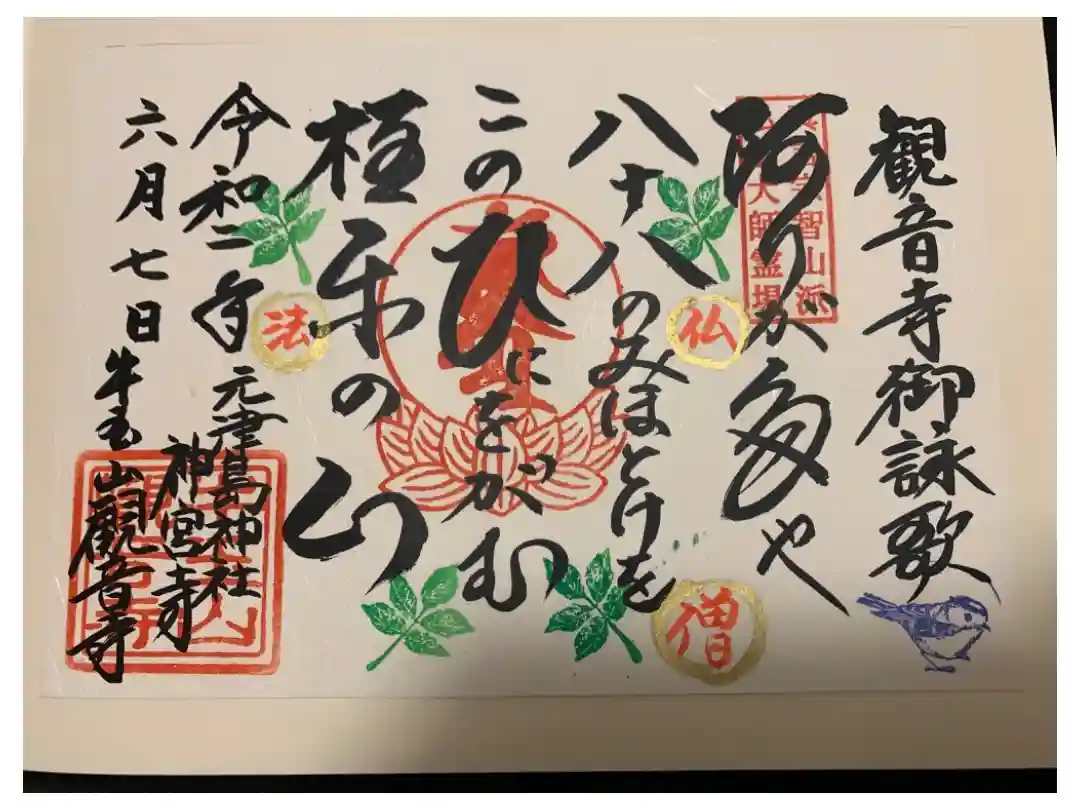 観音寺御詠歌
智山派
大師霊場
阿りが多や
八十八のみほとけを
仏
二のひにをがむ
極楽の山
僧
法
令和二年
元津島神社
神宮寺
六月七日
牛玉山観音寺